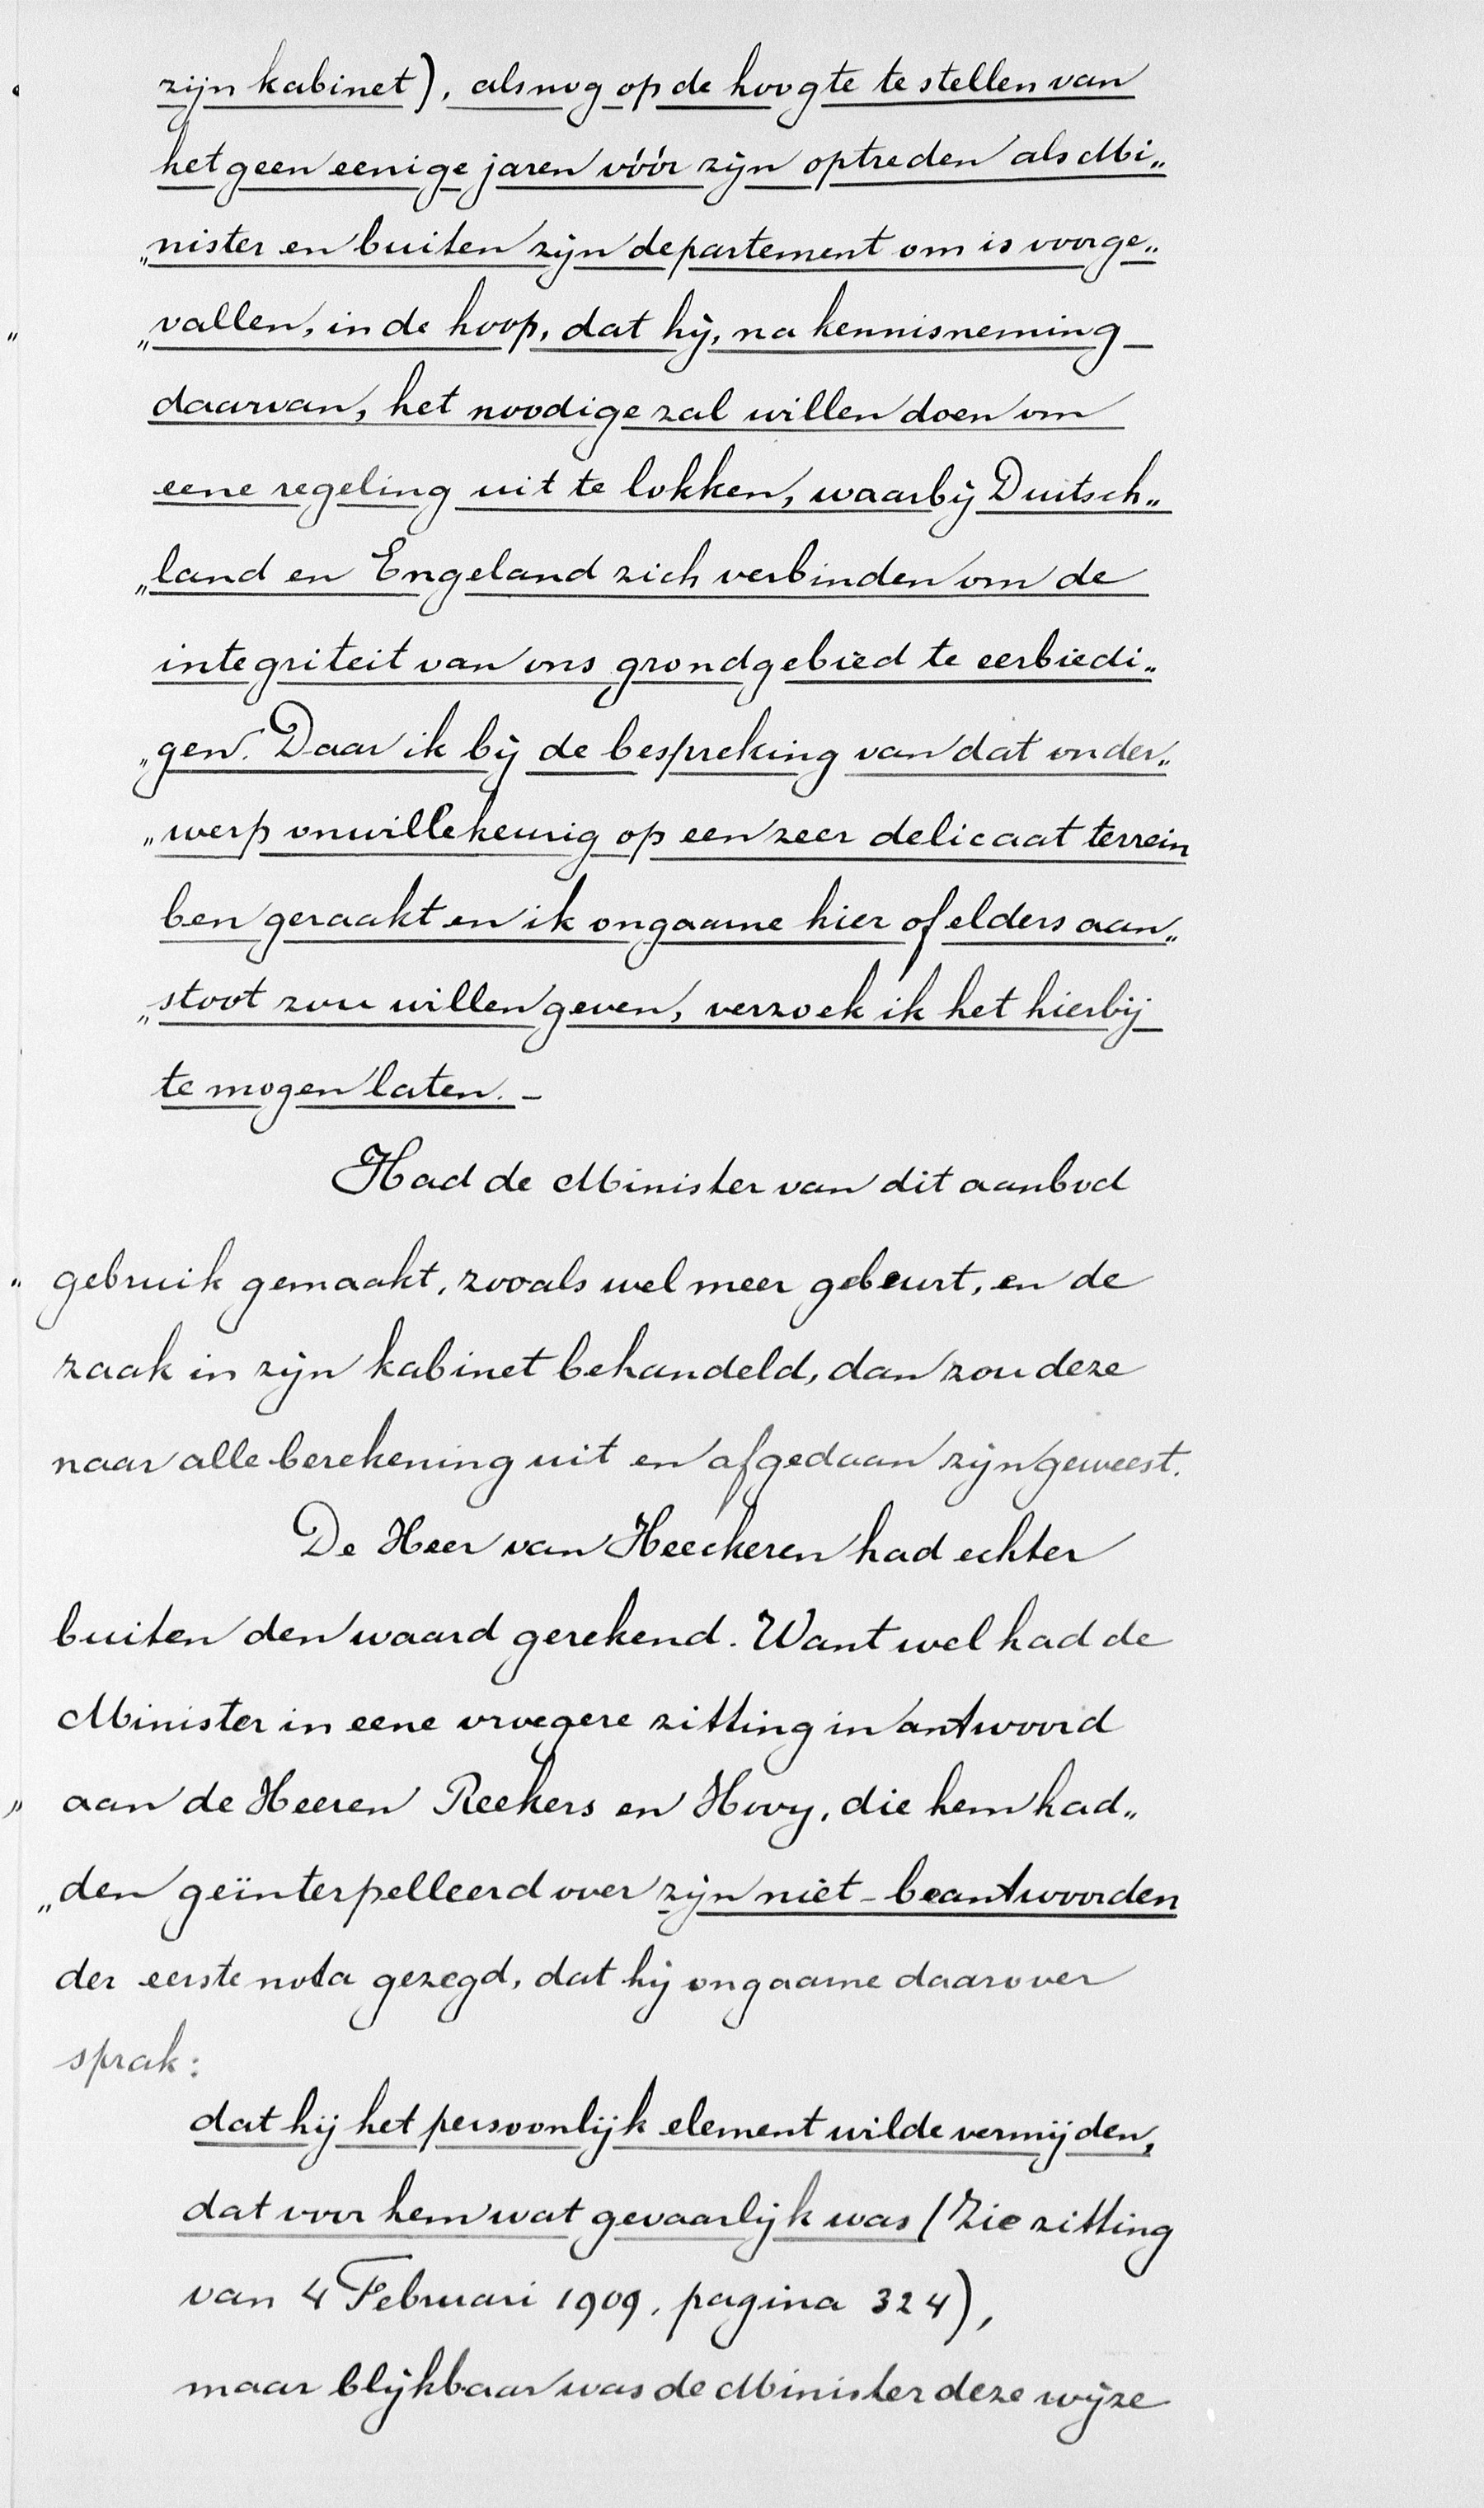 zijn kabinet), alsnog op de hoogte te stellen van
hetgeen eenige jaren vóór zijn optreden als Mi„
„nister en buiten zijn departement om is voorge„
„vallen, in de hoop, dat hij, na kennisneming
daarvan, het noodige zal willen doen om
eene regeling uit te lokken, waarbij Duitsch„
„land en Engeland zich verbinden om de
integriteit van ons grondgebied te eerbiedi„
„gen. Daar ik bij de bespreking van dat onder„
„werp onwillekeurig op een zeer delicaat terrein
ben geraakt en ik ongaarne hier of elders aan„
„stoot zou willen geven, verzoek ik het hierbij
te mogen laten. –
Had de Minister van dit aanbod
gebruik gemaakt, zooals wel meer gebeurt, en de
zaak in zijn kabinet behandeld, dan zou deze
naar alle berekening uit en afgedaan zijn geweest.
De Heer van Heeckeren had echter
buiten den waard gerekend. Want wel had de
Minister in eene vroegere zitting in antwoord
aan de Heeren Reekers en Hovy, die hem had„
„den geïnterpelleerd over zijn niet-beantwoorden
der eerste nota gezegd, dat hij ongaarne daarover
sprak:
dat hij het persoonlijk element wilde vermijden,
dat voor hem wat gevaarlijk was (Zie zitting
van 4 Februari 1909, pagina 324),
maar blijkbaar was de Minister deze wijze